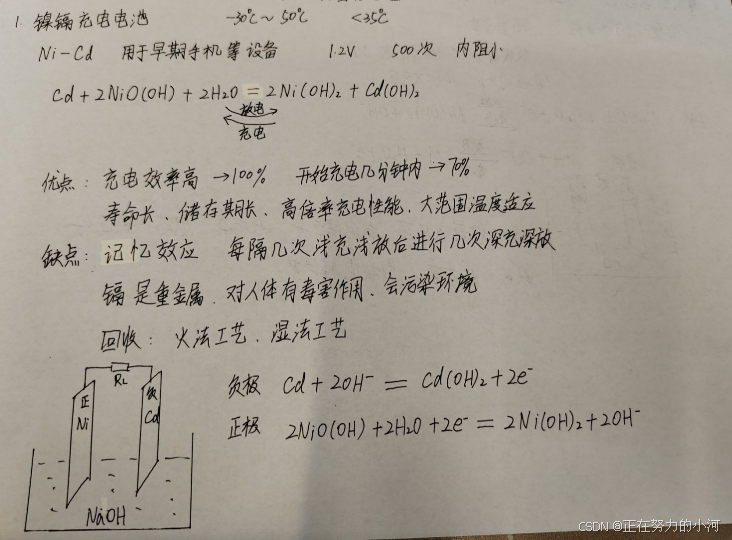 1. 镍镉充电电池 -30℃~50℃ <35℃
Ni-Cd 用于早期手机等设备 1.2V 500次 内阻小
Cd + 2NiO(OH) + 2H2O = 2Ni(OH)2 + Cd(OH)2
放电
充电
优点: 充电效率高 →100% 开始充电几分钟内→70%
寿命长、储存期长、高倍率充电性能、大范围温度适应
缺点: 记忆效应 每隔几次浅充浅放后进行几次深充深放
镉是重金属、对人体有毒害作用、会污染环境
回收: 火法工艺、湿法工艺
RL
正 Ni
负 Cd
NaOH
负极 Cd + 2OH- = Cd(OH)2 + 2e-
正极 2NiO(OH) + 2H2O + 2e- = 2Ni(OH)2 + 2OH-
CSDN @正在努力的小河